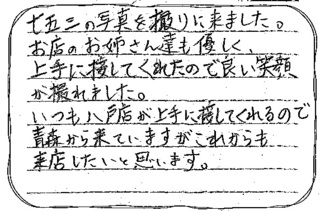 七五三の写真を撮りに来ました。
お店のお姉さん達も優しく、
上手に接してくれたので良い笑顔
が撮れました。
いつも八戸店が上手に接してくれるので
青森から来ていますがこれからも
来店したいと思います。